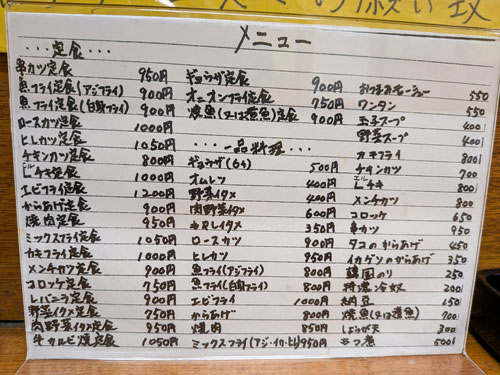 メニュー
・・・定食・・・
串カツ定食 950円
魚フライ定食(アジフライ) 900円
魚フライ定食(白身フライ) 900円
ロースカツ定食 1000円
ヒレカツ定食 1050円
チキンカツ定食 800円
チキ定食 1000円
エビフライ定食 1200円
からあげ定食 900円
焼肉定食 950円
ミックスフライ定食 1050円
カキフライ定食 1000円
メンチカツ定食 900円
コロッケ定食 750円
レバニラ定食 900円
野菜イタメ定食 750円
肉野菜イタメ定食 950円
牛カルビ焼定食 1050円
ギョウザ定食 900円
オニオンフライ定食 750円
焼魚(又は煮魚)定食 900円
・・・・一品料理・・・
ギョウザ(6ヶ) 500円
オムレツ 400円
野菜イタメ 400円
肉野菜イタメ 600円
350円
ロースカツ 900円
ヒレカツ 950円
魚フライ(アジフライ) 800円
魚フライ(白身フライ) 800円
エビフライ 1000円
からあげ 800円
焼肉 850円
ミックスフライ(アジ・イカ・ヒレ) 950円
550
ワンタン 550
玉子スープ 400
野菜スープ 400
カキフライ 800
チキンカツ 700
チキ 800
メンチカツ 800
コロッケ 650
串カツ 950
タコのからあげ 450
イカゲソのからあげ 350
韓国のり 250
冷奴 200
納豆 150
焼魚(又は煮魚) 700
しょうが天 300
もつ煮 500